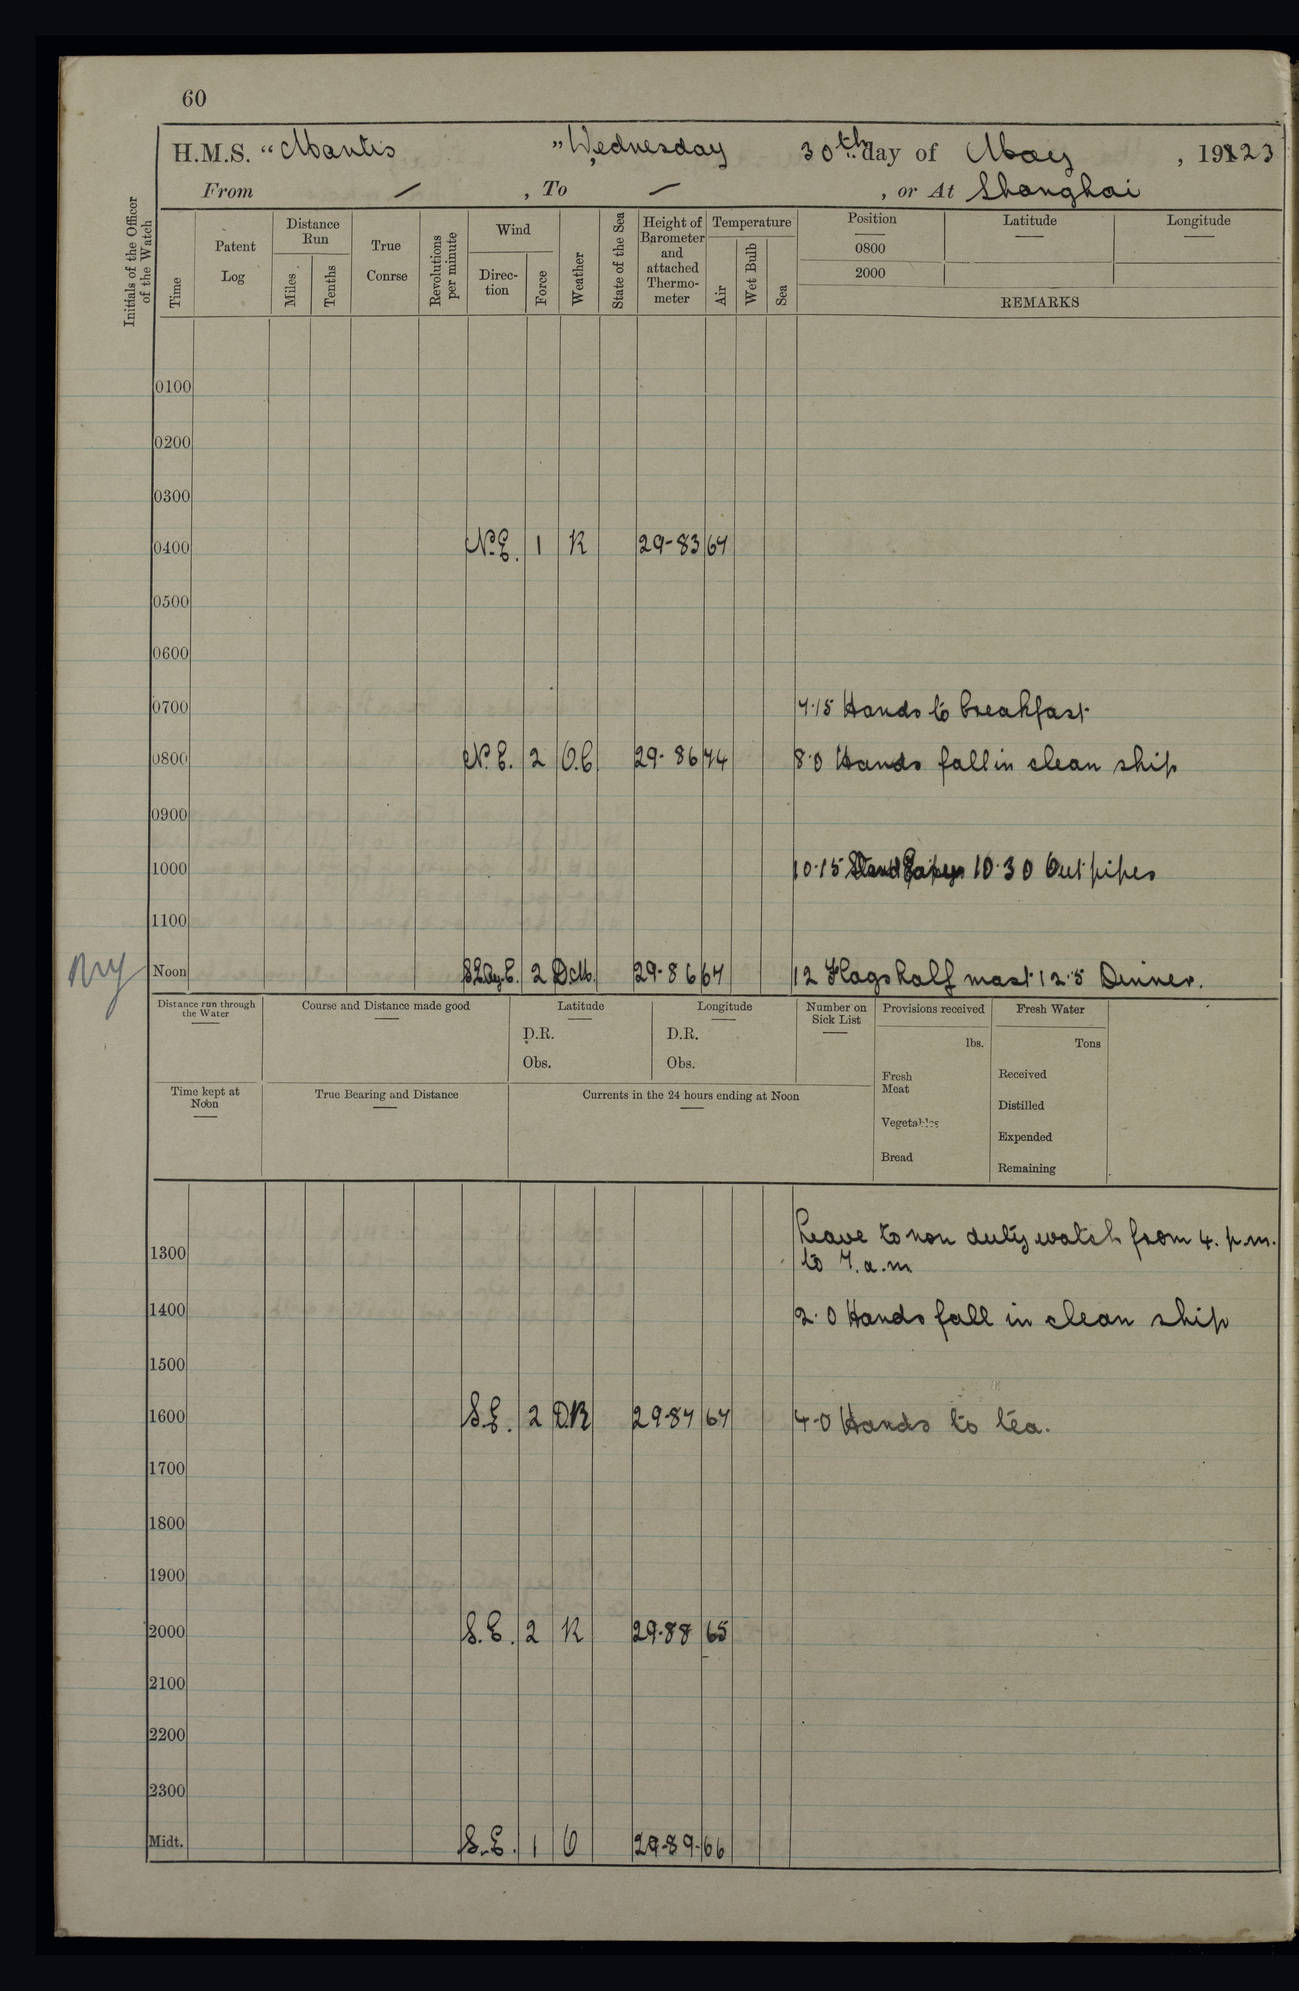 60
H.M.S. "Mantis" Wednesday 30th day of May, 1923
From — , To — , or At Shanghai
Initials of the Officer of the Watch
Time
Patent Log
Distance Run
Miles
Tenths
True Conrse
Revolutions per minute
Wind
Direc-tion
Force
Weather
State of the Sea
Height of Barometer and attached Thermo-meter
Temperature
Air
Wet Bulb
Sea
Position
Latitude
Longitude
0800
2000
REMARKS
0100
0200
0300
0400 N.E. 1 R 29-83 67
0500
0600
0700 7.15 Hands to breakfast
0800 N.E. 2 O.C. 29-86 74 8.0 Hands fall in clean ship
0900
1000 10.15 10.30 Out pipes
1100
Noon 2 29-86 67 12 Flags half mast 12.5 Dinner.
Distance run through the Water
Course and Distance made good
Latitude
D.R.
Obs.
Longitude
D.R.
Obs.
Number on Sick List
Provisions received
lbs.
Fresh Meat
Vegetables
Bread
Fresh Water
Tons
Received
Distilled
Expended
Remaining
Time kept at Noon
True Bearing and Distance
Currents in the 24 hours ending at Noon
Leave to non duty watch from 4. p.m.
1300 to 7. a.m
1400 2.0 Hands fall in clean ship
1500
1600 S.E. 2 D.R 29-87 67 4-0 Hands to tea.
1700
1800
1900
2000 S.E. 2 R 29.88 65
2100
2200
2300
Midt. S.E. 1 O 29-89- 66